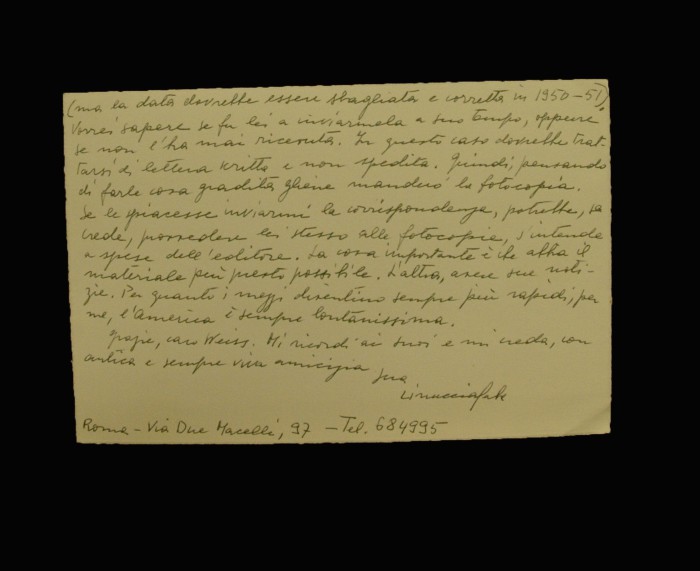 (ma la data dovrebbe essere sbagliata e corretta in 1950-51),
vorrei sapere se fu lei a inviarmela a suo tempo, oppure
se non l'ha mai ricevuta. In questo caso dovrebbe trat-
tarsi di lettera scritta e non spedita. Quindi, pensando
di farle cosa gradita gliene manderò la fotocopia.
Se le spiacesse inviarmi la corrispondenza, potrebbe, se
crede, procedere lei stesso alle fotocopie, s'intende
a spese dell'editore. La cosa importante è che abbia il
materiale più presto possibile. L'altra, avere sue noti-
zie. Per quanto i mezzi diventino sempre più rapidi, per
me, l'America è sempre lontanissima.
Grazie, caro Weiss. Mi ricordi ai suoi e mi creda, con
antica e sempre viva amicizia
sua
Linuccia Saba
Roma - Via Due Macelli, 97 - Tel. 684995